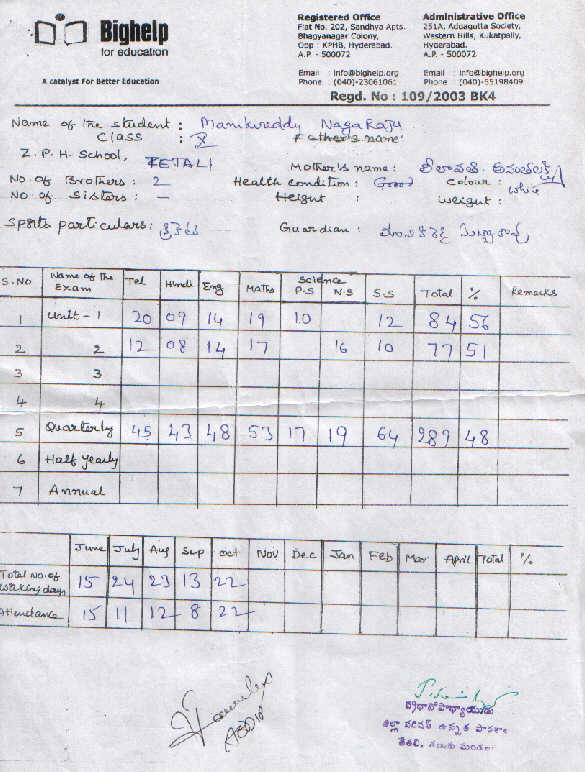 Bighelp
for education
A catalyst For Better Education
Registered Office
Flat No. 202, Sandhya Apts.
Bhagyanagar Colony,
Opp : KPHB, Hyderabad.
A.P. - 500072
Email : info@bighelp.org
Phone : (040)-23061061
Administrative Office
251A, Addagutta Society,
Western Hills, Kukatpally,
Hyderabad.
A.P. - 500072
Email : info@bighelp.org
Phone : (040)-55198409
Regd. No : 109/2003 BK4
Name of the student : Manikireddy Nagaraju
Class : X Father's name:
Z. P. H. School, TETALI
Mother's name :
No. of Brothers : 2 Health condition : Good colour : white
No. of Sisters : - Height : weight :
Sports particulars: క్రికెట్ Guardian :
S.NO Name of the Exam Tel Hindi Eng Maths Science P.S N.S S.S Total % Remarks
1 Unit - 1 20 09 14 19 10 12 84 56
2 2 12 08 14 17 16 10 77 51
3 3
4 4
5 Quarterly 45 43 48 53 17 19 64 289 48
6 Half Yearly
7 Annual
June July Aug Sep Oct Nov Dec Jan Feb Mar April Total %
Total No. of working days 15 24 23 13 22
Attendance 15 11 12 8 22
ప్రధానోపాధ్యాయుడు
జిల్లా పరిషత్ ఉన్నత పాఠశాల
తేతలి, తణుకు మండలం